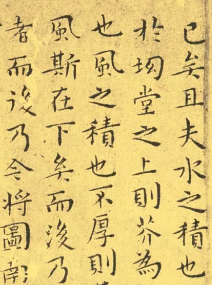 已矣且夫水之積也
於坳堂之上則芥為
也風之積也不厚則
風斯在下矣而後乃
者而後乃今將圖南